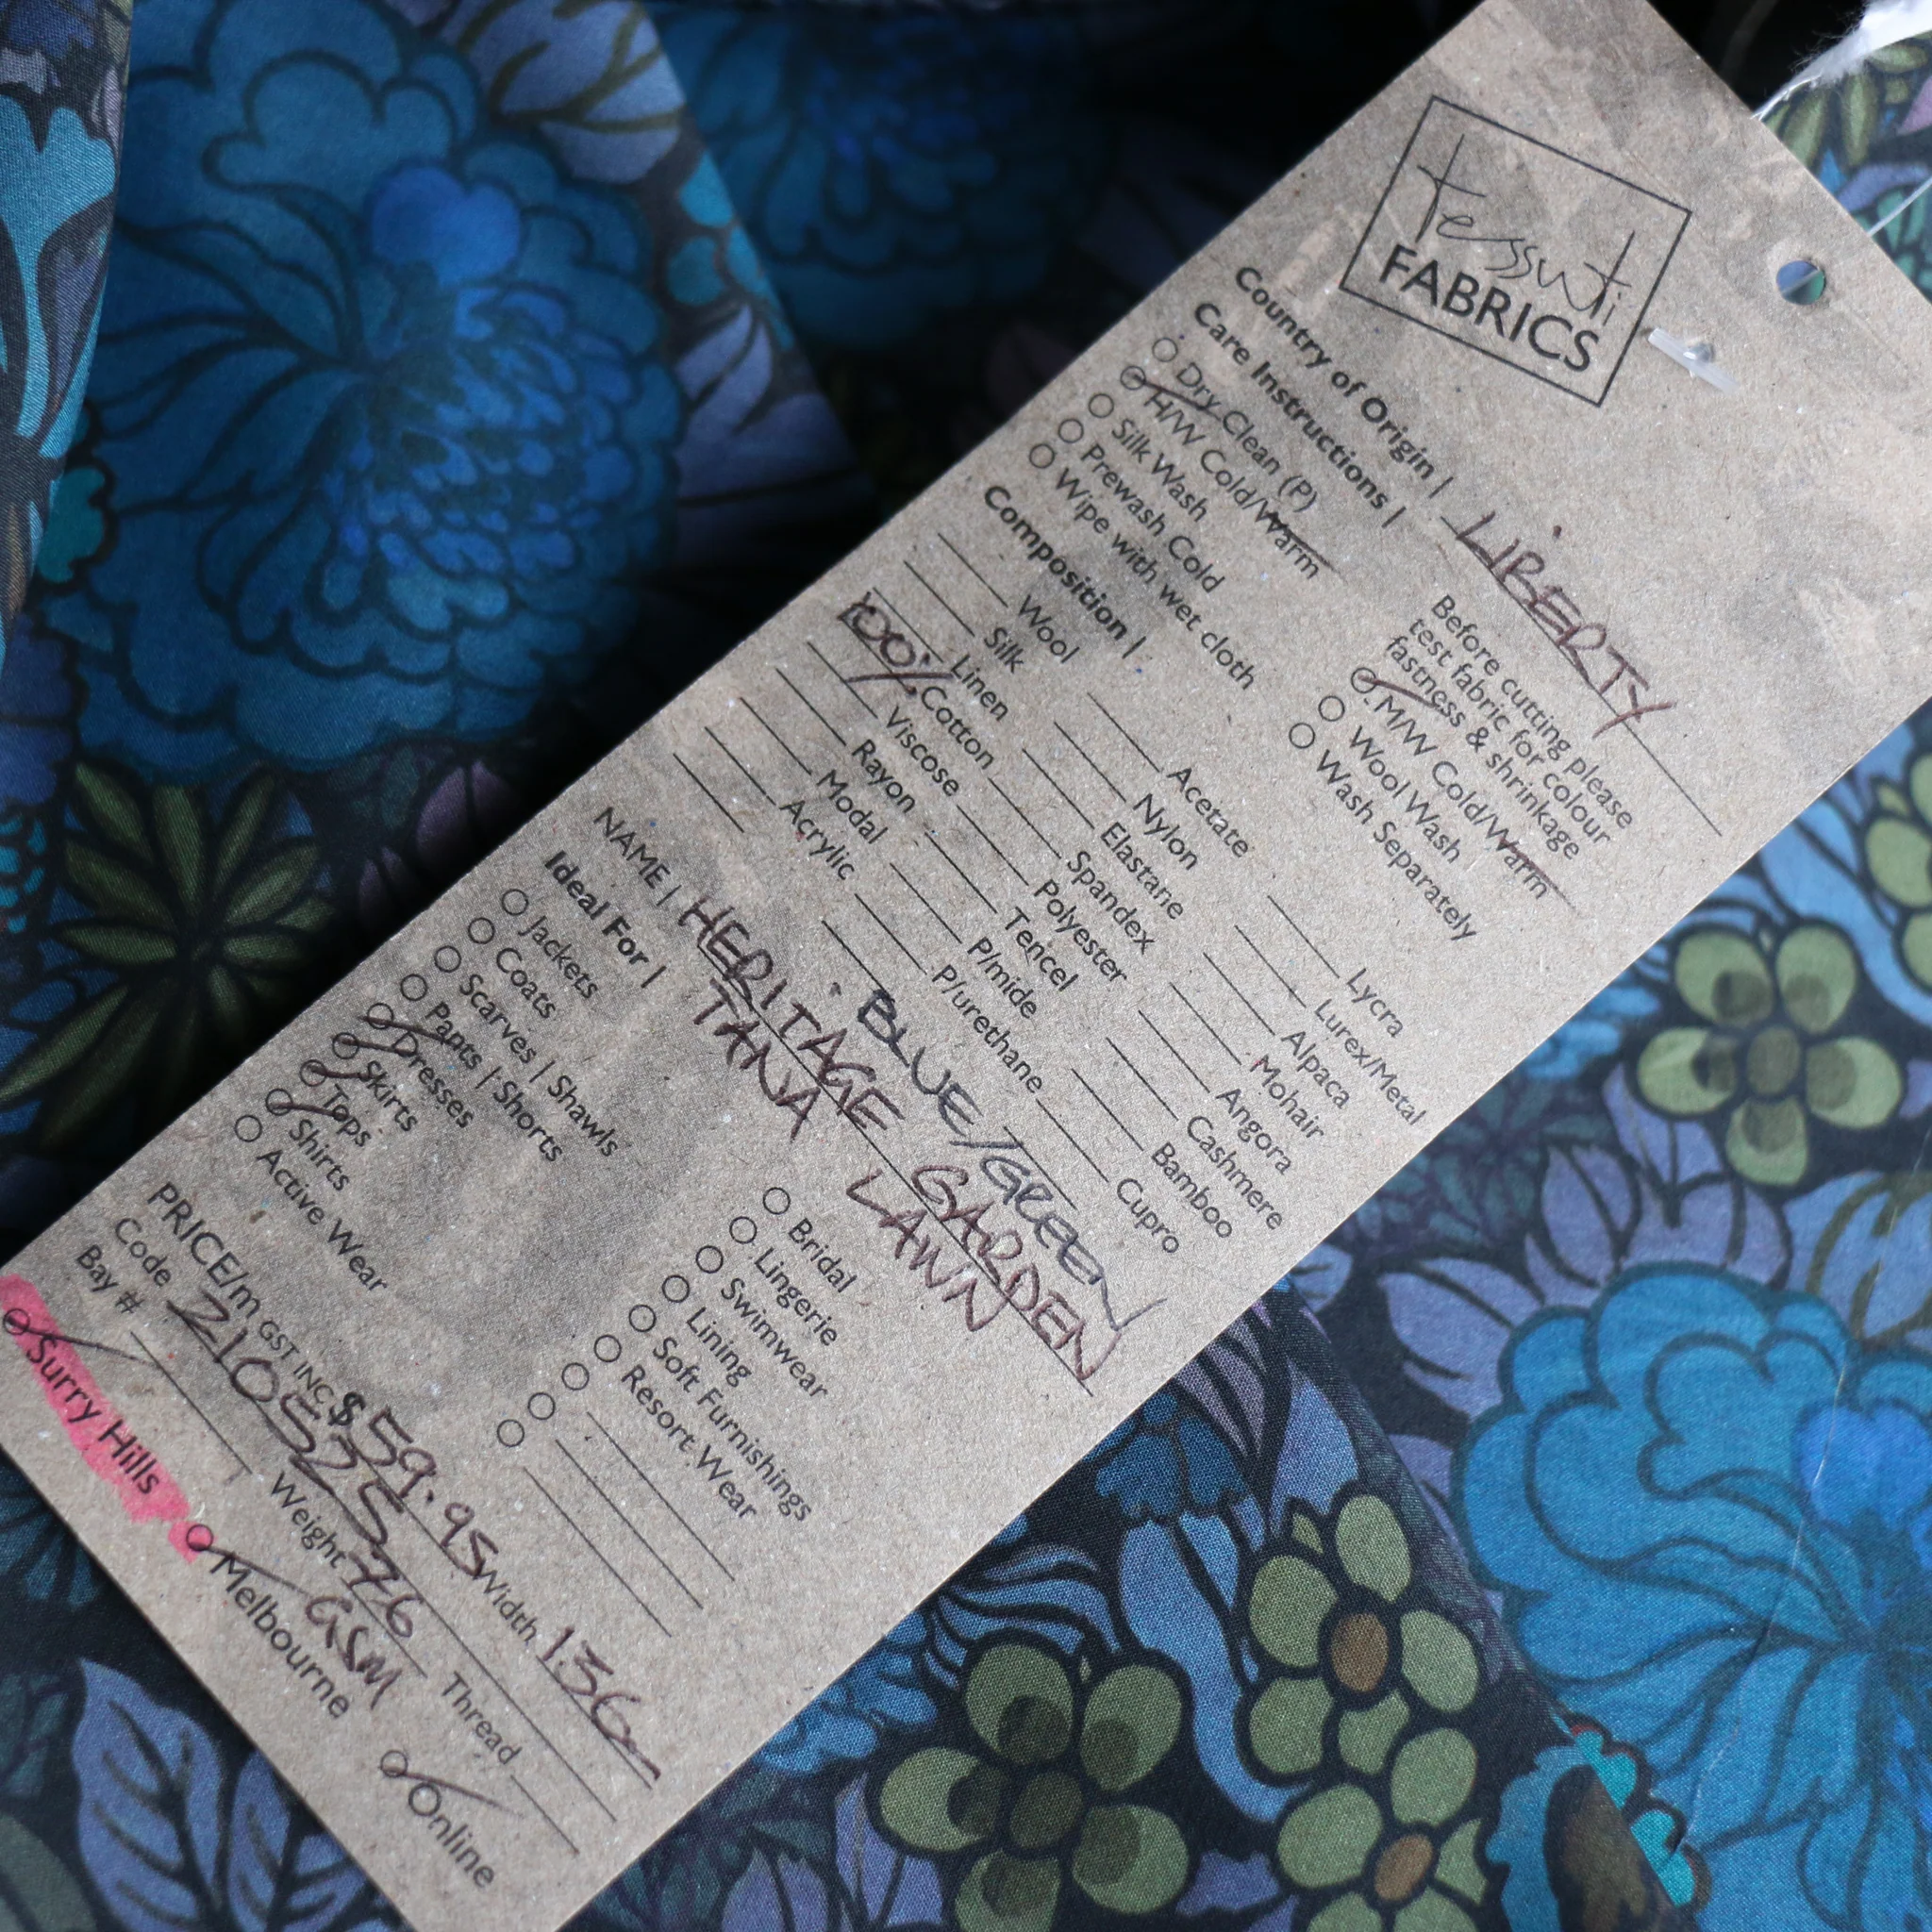 tessuti
FABRICS
Country of Origin | LIBERTY
Care Instructions |
Before cutting please
test fabric for colour
fastness & shrinkage
Dry Clean (P)
H/W Cold/Warm
Silk Wash
Prewash Cold
Wipe with wet cloth
M/W Cold/Warm
Wool Wash
Wash Separately
Composition |
Wool
Silk
Linen
100% Cotton
Viscose
Rayon
Modal
Acrylic
Acetate
Nylon
Elastane
Spandex
Polyester
Tencel
P/mide
P/urethane
Lycra
Lurex/Metal
Alpaca
Mohair
Angora
Cashmere
Bamboo
Cupro
BLUE/GREEN
NAME | HERITAGE GARDEN
TANA LAWN
Ideal For |
Jackets
Coats
Scarves | Shawls
Pants | Shorts
Dresses
Skirts
Tops
Shirts
Active Wear
Bridal
Lingerie
Swimwear
Lining
Soft Furnishings
Resort Wear
PRICE/m GST INC $ 59.95 Width 136
Code 210525
Bay # Weight 76 GSM Thread
Surry Hills Melbourne Online